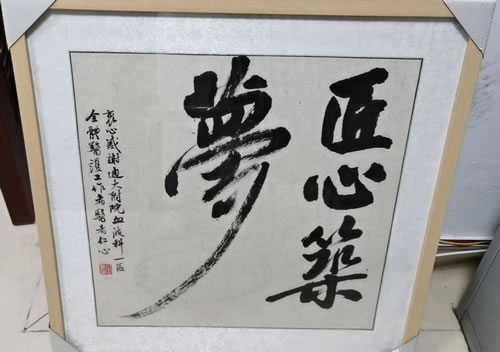 匠心築
夢
衷心感謝通大附院血液科一區
全體醫護工作者醫者仁心